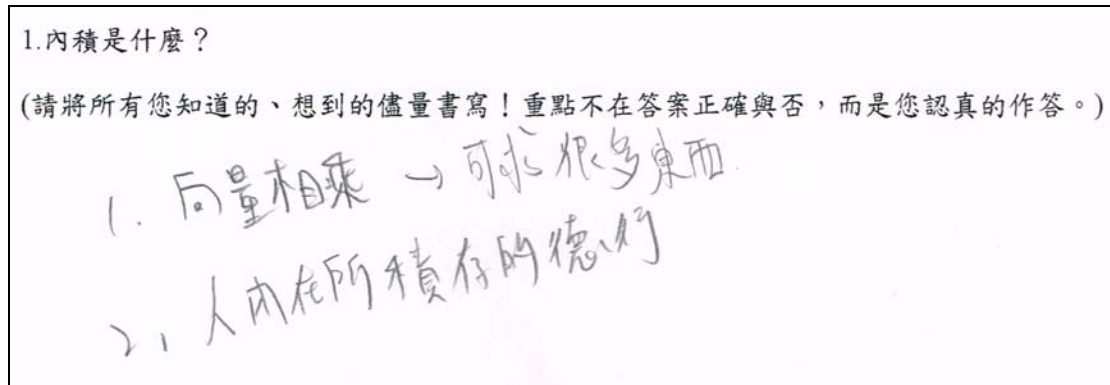 1.內積是什麼？
(請將所有您知道的、想到的儘量書寫！重點不在答案正確與否，而是您認真的作答。)
1. 向量相乘 → 可求很多東西.
2. 人內在所積存的德行